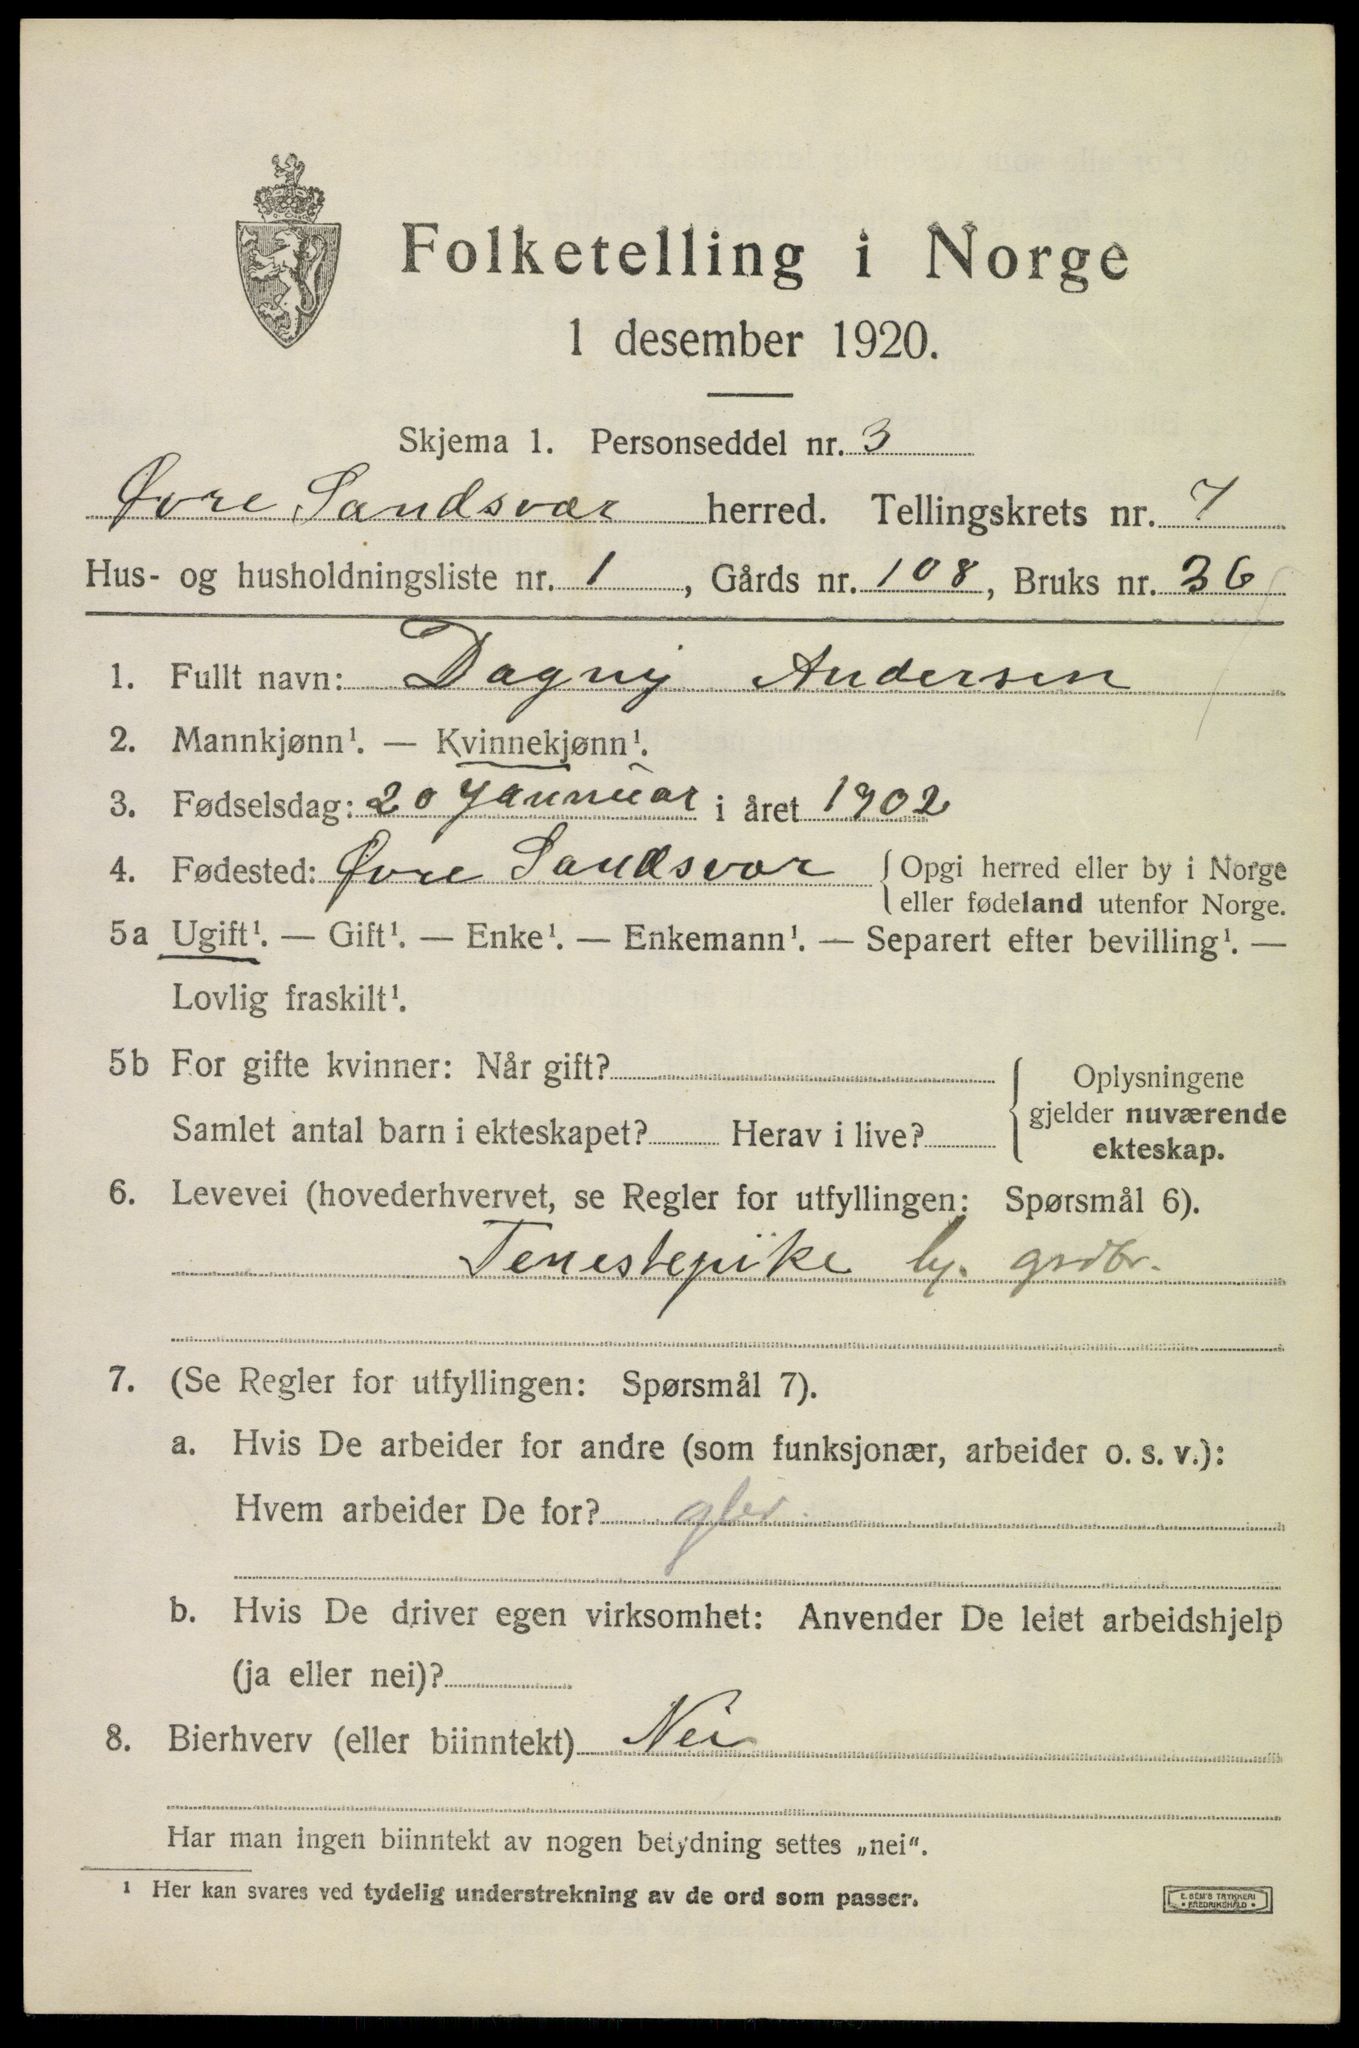 Folketelling i Norge
1 desember 1920.
Skjema 1. Personseddel nr. 3
Øvre Sandsvær herred. Tellingskrets nr. 7
Hus- og husholdningsliste nr. 1, Gårds nr. 108, Bruks nr. 36
1. Fullt navn: Dagny Andersen
2. Mannkjønn¹. — Kvinnekjønn¹.
3. Fødselsdag: 20 Januar i året 1902
4. Fødested: Øvre Sandsvær {Opgi herred eller by i Norge
eller fødeland utenfor Norge.
5a Ugift¹. — Gift¹. — Enke¹. — Enkemann¹. — Separert efter bevilling¹. —
Lovlig fraskilt¹.
5b For gifte kvinner: Når gift? { Oplysningene
gjelder nuværende
Samlet antal barn i ekteskapet? Herav i live?
ekteskap.
6. Levevei (hovederhvervet, se Regler for utfyllingen: Spørsmål 6).
Tenestepike hj. grdbr.
7. (Se Regler for utfyllingen: Spørsmål 7).
a. Hvis De arbeider for andre (som funksjonær, arbeider o. s. v.):
Hvem arbeider De for?
b. Hvis De driver egen virksomhet: Anvender De leiet arbeidshjelp
(ja eller nei)?
8. Bierhverv (eller biinntekt) Nei
Har man ingen biinntekt av nogen betydning settes „nei“.
¹ Her kan svares ved tydelig understrekning av de ord som passer.
E. SEM'S TRYKKERI
• FREDRIKSHALD •